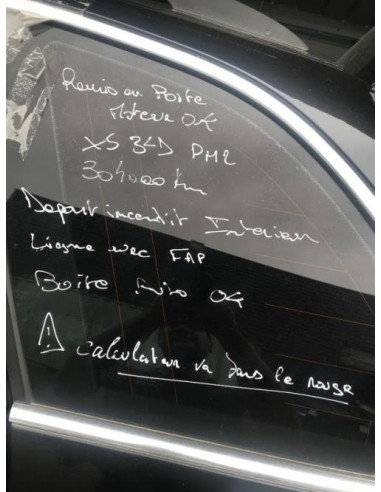 Remis en Route
Moteur OK
X5 34D PH2
304000 km
Depart incendit Interieur
Liagne avec FAP
Boite Auto OK
⚠ calculateur va dans le rouge